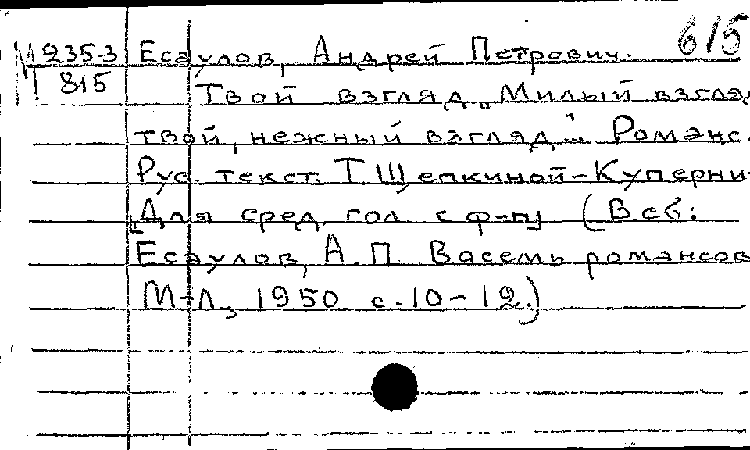 615
М 235-3 Есаулов, Андрей Петрович.
П 815 Твой взгляд „Милый взгля
твой, нежный взгляд..." Романс.
Рус. текст. Т. Щепкиной-Куперни
Для сред. гол. с ф-п] (В сб:
Есаулов, А. П. Восемь романсов
М-Л, 1950 с.10-12.)